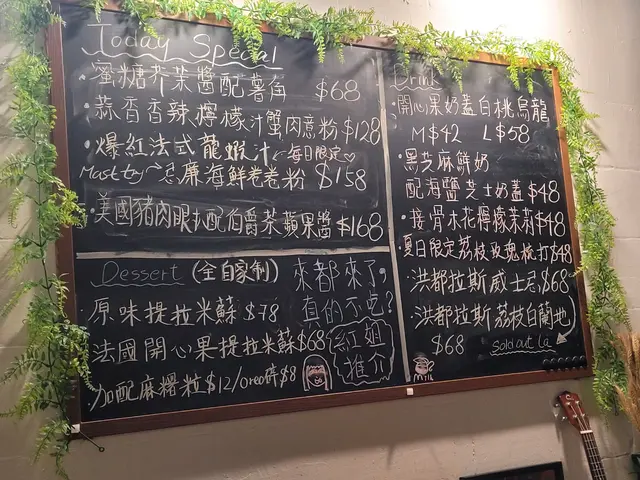 Today Special
蜜糖芥菜醬配薯角 $68
·蒜香香辣檸檬汁蟹肉意粉 $128
·爆紅法式龍蝦汁 每日限定♡
Must try~忌廉海鮮卷卷粉 $158
·美國豬肉眼扒配伯爵茶蘋果醬 $168
Dessert (全自家制)
原味提拉米蘇 $78
法國開心果提拉米蘇 $68
加配麻糬粒$12/oreo碎$8
來都來了,
真的不吃?
紅姐
推介
Drink
·開心果奶蓋白桃烏龍
M$42 L$58
·黑芝麻鮮奶
配海鹽芝士奶蓋 $48
·接骨木花檸檬茉莉 $48
夏日限定荔枝玫瑰梳打 $48
·洪都拉斯威士忌 $68
·洪都拉斯荔枝白蘭地
$68 Sold out la